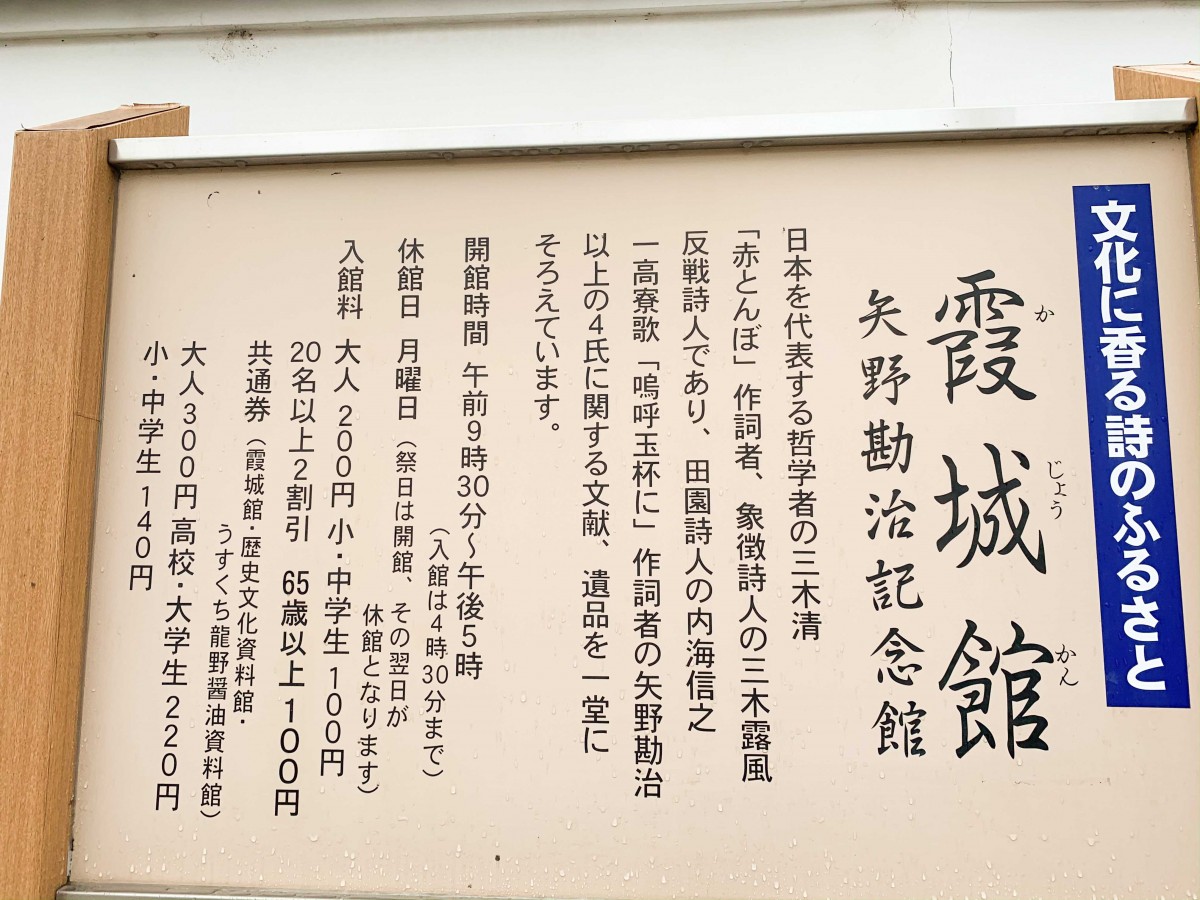 文化に香る詩のふるさと
霞城館
かじょうかん
矢野勘治記念館
日本を代表する哲学者の三木清
「赤とんぼ」作詞者、象徴詩人の三木露風
反戦詩人であり、田園詩人の内海信之
一高寮歌「嗚呼玉杯に」作詞者の矢野勘治
以上の4氏に関する文献、遺品を一堂に
そろえています。
開館時間 午前9時30分〜午後5時
(入館は4時30分まで)
休館日 月曜日(祭日は開館、その翌日が
休館となります)
入館料 大人 200円 小・中学生 100円
20名以上2割引 65歳以上 100円
共通券(霞城館・歴史文化資料館・
うすくち龍野醤油資料館)
大人300円 高校・大学生 220円
小・中学生 140円